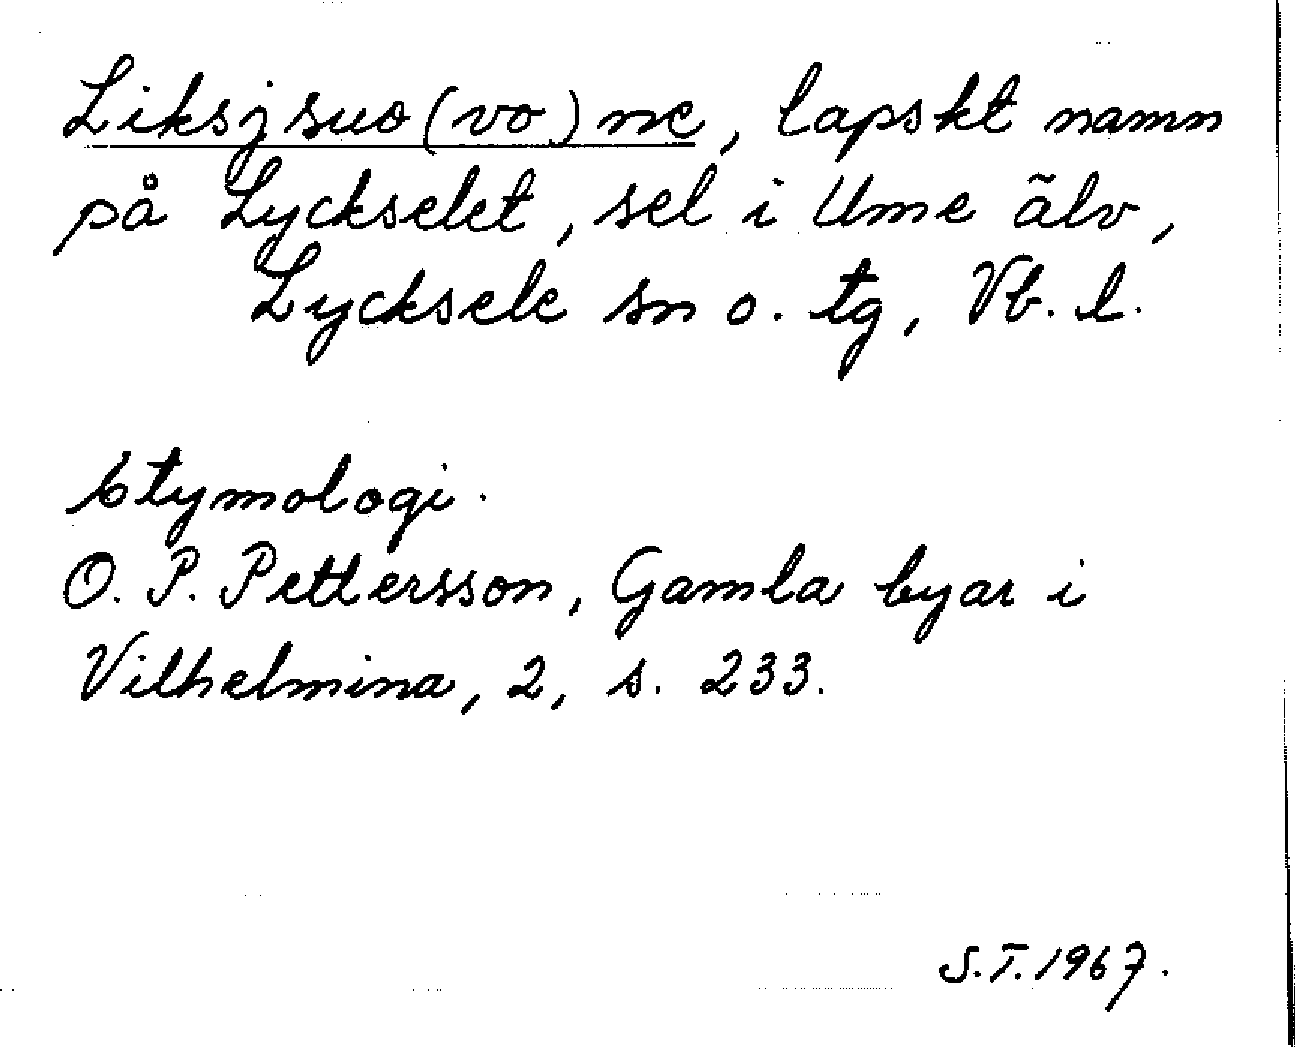 Liksjsuo(vo)ne, lapskt namn
på Lyckselet, sel i Ume älv,
Lycksele sn o. tg, Vb. l.
Etymologi.
O. P. Pettersson, Gamla byar i
Vilhelmina, 2, s. 233.
S.T. 1967.